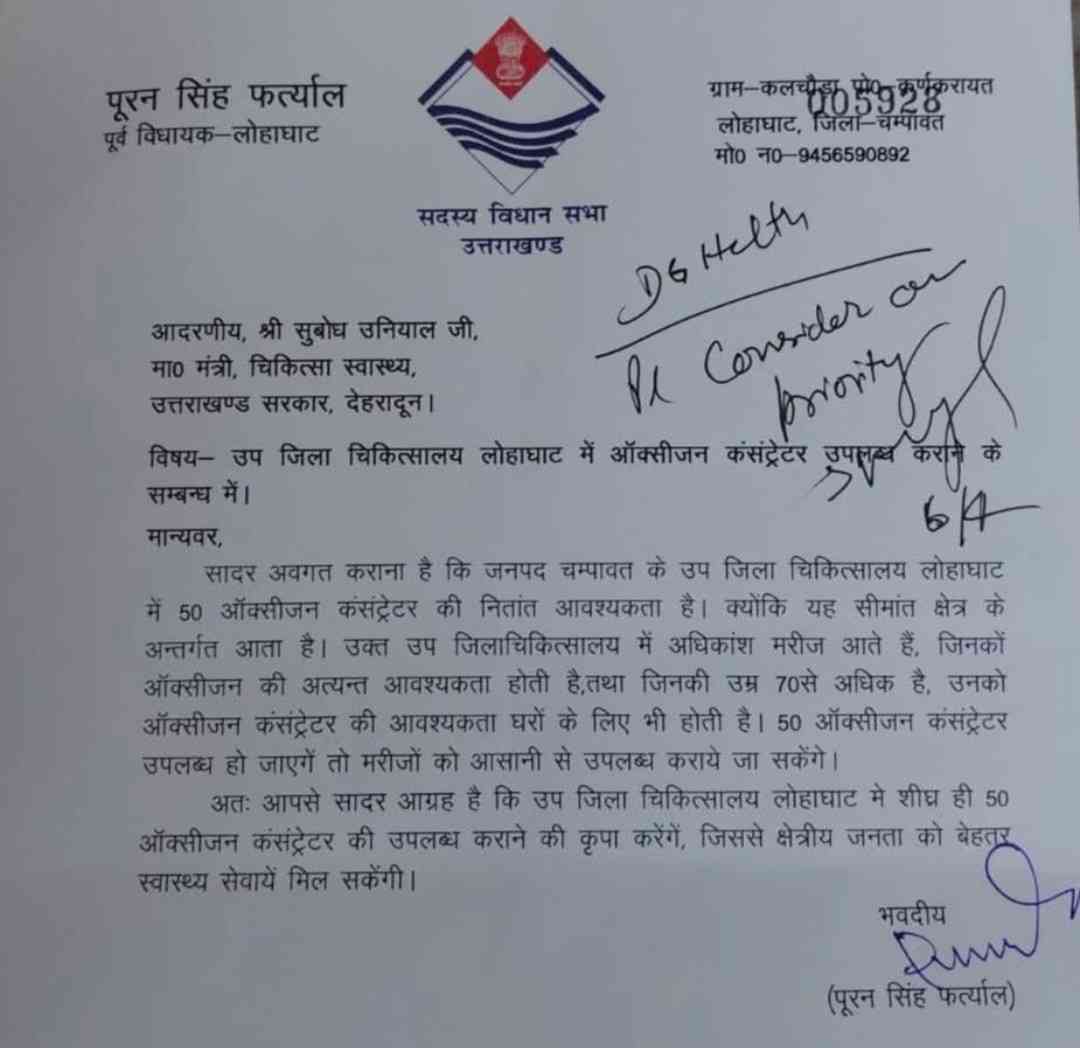 पूरन सिंह फर्त्याल
पूर्व विधायक–लोहाघाट
ग्राम–कलचौड़ा, पो0–कर्णकरायत
005928
लोहाघाट, जिला–चम्पावत
मो0 न0–9456590892
सदस्य विधान सभा
उत्तराखण्ड
DG Helth
Pl Consider on
priority
6/4
आदरणीय, श्री सुबोध उनियाल जी,
मा0 मंत्री, चिकित्सा स्वास्थ्य,
उत्तराखण्ड सरकार, देहरादून।
विषय– उप जिला चिकित्सालय लोहाघाट में ऑक्सीजन कंसंट्रेटर उपलब्ध कराने के
सम्बन्ध में।
मान्यवर,
सादर अवगत कराना है कि जनपद चम्पावत के उप जिला चिकित्सालय लोहाघाट
में 50 ऑक्सीजन कंसंट्रेटर की नितांत आवश्यकता है। क्योंकि यह सीमांत क्षेत्र के
अन्तर्गत आता है। उक्त उप जिलाचिकित्सालय में अधिकांश मरीज आते हैं, जिनकों
ऑक्सीजन की अत्यन्त आवश्यकता होती है,तथा जिनकी उम्र 70से अधिक है, उनको
ऑक्सीजन कंसंट्रेटर की आवश्यकता घरों के लिए भी होती है। 50 ऑक्सीजन कंसंट्रेटर
उपलब्ध हो जाएगें तो मरीजों को आसानी से उपलब्ध कराये जा सकेंगे।
अतः आपसे सादर आग्रह है कि उप जिला चिकित्सालय लोहाघाट मे शीघ्र ही 50
ऑक्सीजन कंसंट्रेटर की उपलब्ध कराने की कृपा करेंगें, जिससे क्षेत्रीय जनता को बेहतर
स्वास्थ्य सेवायें मिल सकेंगी।
भवदीय
(पूरन सिंह फर्त्याल)